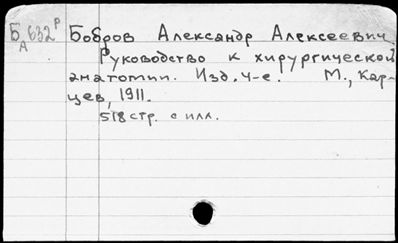 Б 632 р
А
Бобров Александр Алексеевич
Руководство к хирургической
анатомии. Изд. 4-е. М., Кар-
цев, 1911.
518 стр. с илл.